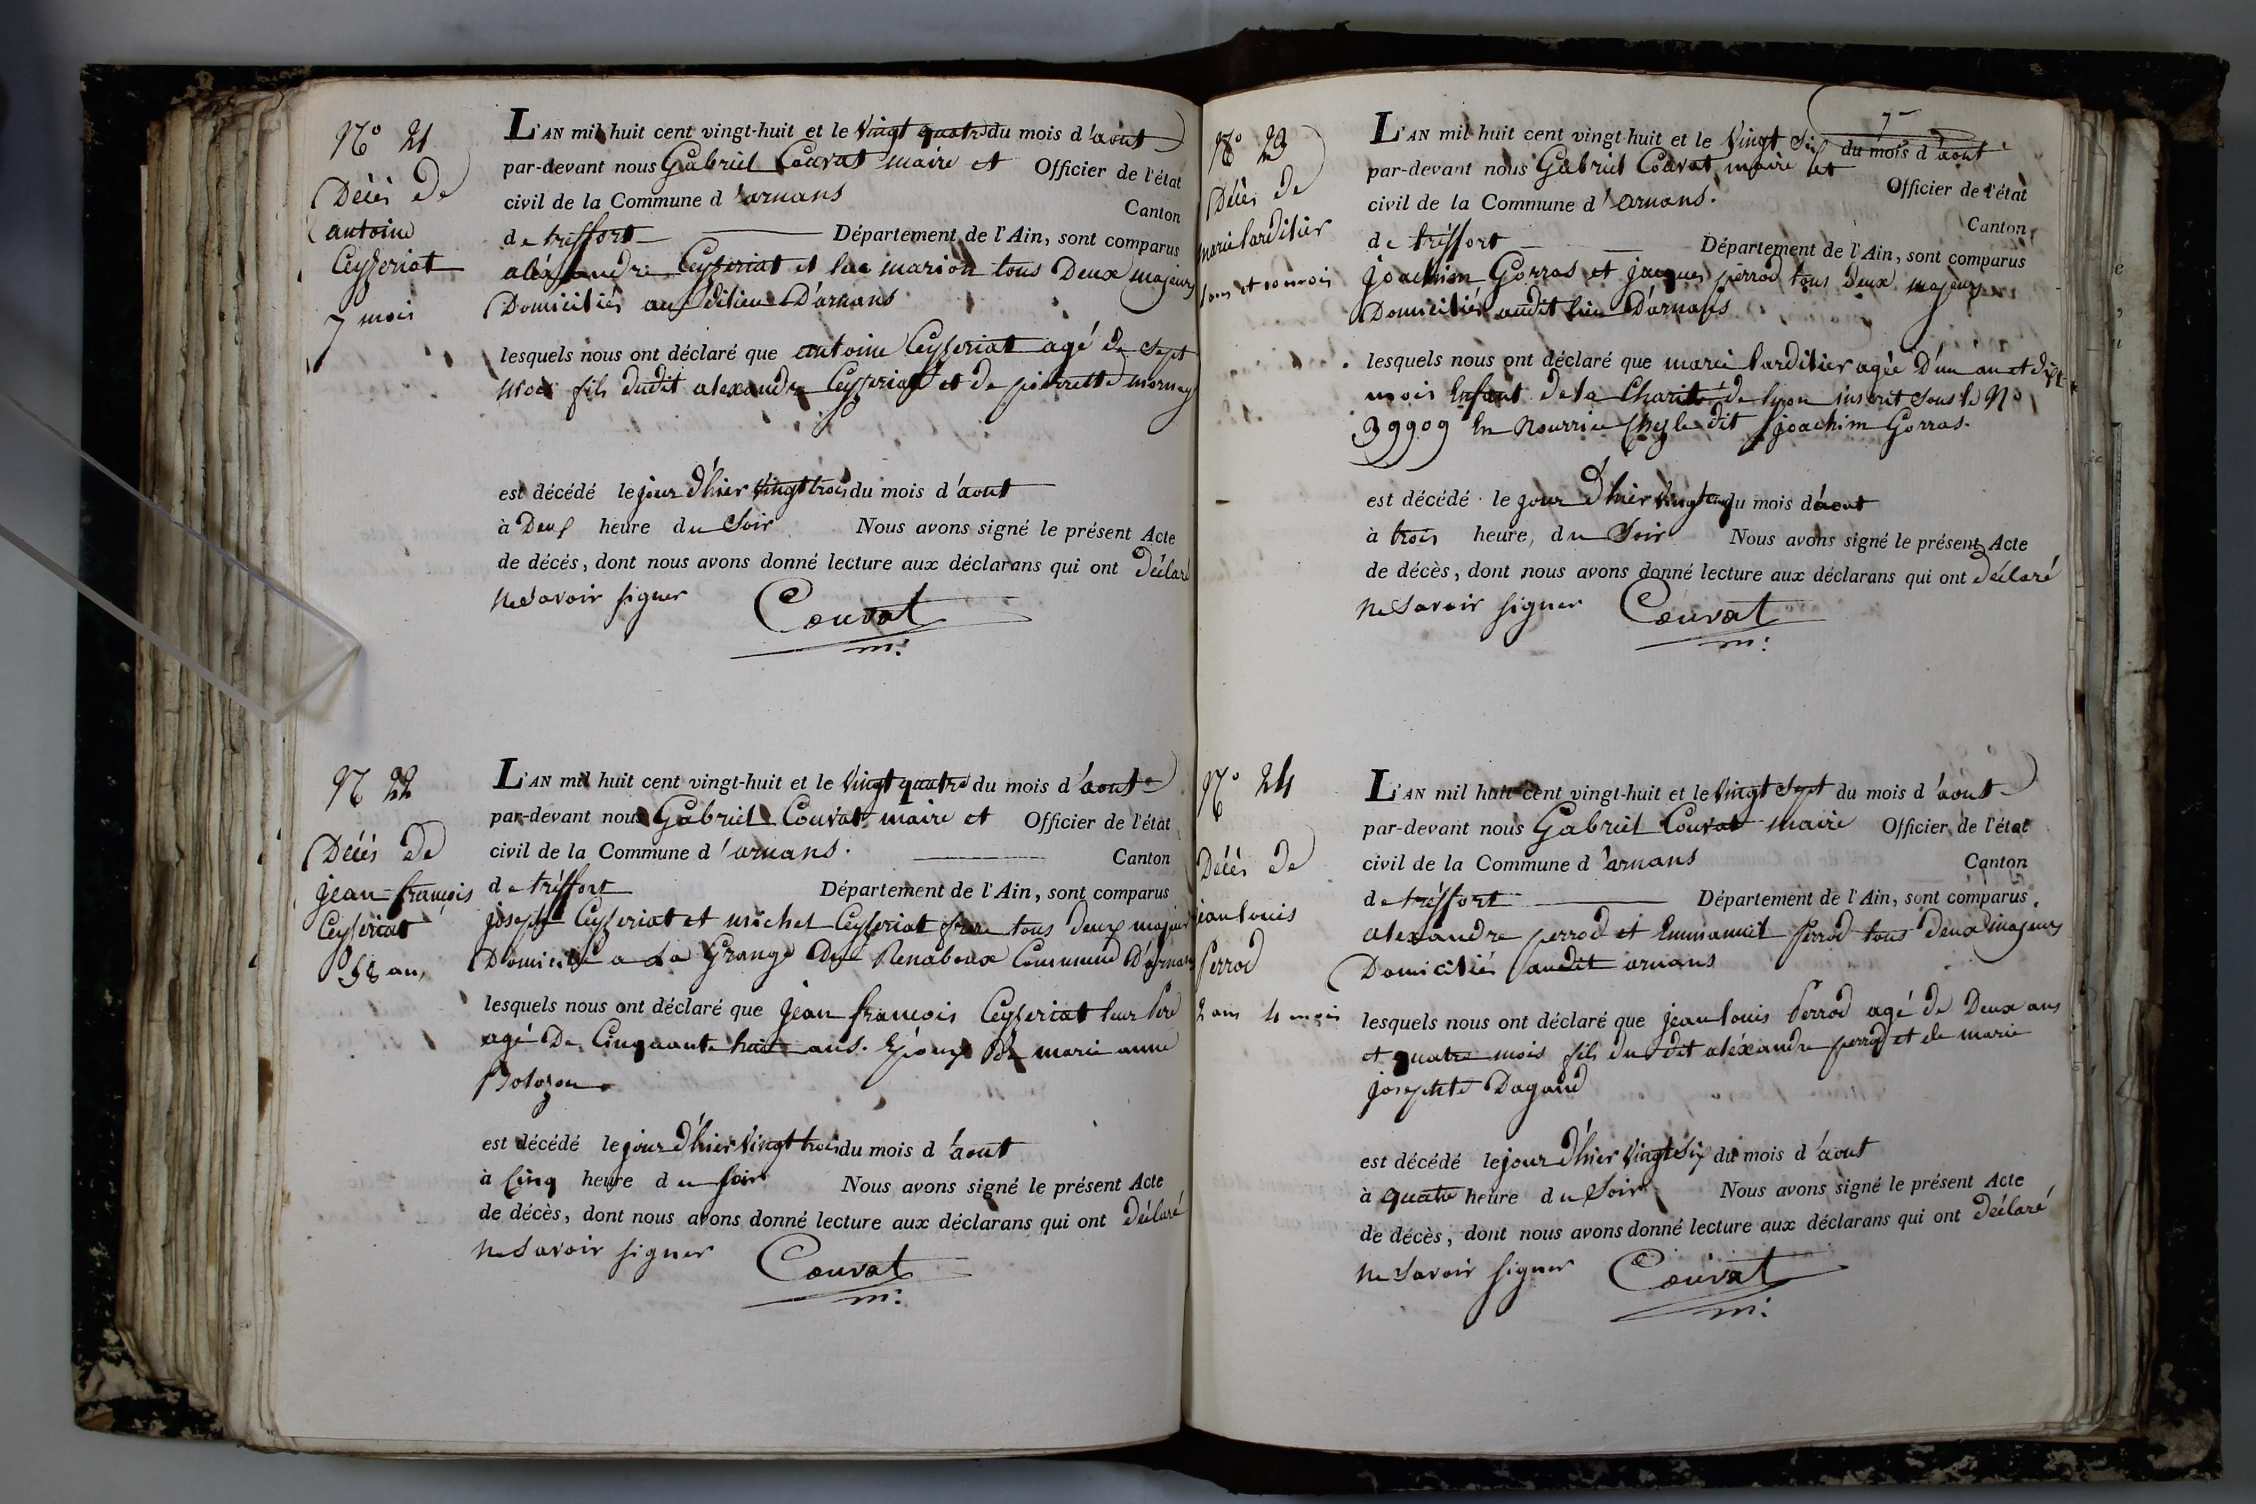 N° 21
Décès de
antoine
Ceyseriat
7 mois
L'AN mil huit cent vingt-huit et le vingt quatre du mois d'aout
par-devant nous Gabriel Couvat maire et Officier de l'état
civil de la Commune d'arnans Canton
de tréffort Département de l'Ain, sont comparus
aléxandre Ceyseriat et luc marion tous Deux majeurs
Domiciliés audit lieu D'arnans
lesquels nous ont déclaré que antoine Ceyseriat agé de sept
mois fils dudit alexandre Ceyseriat et de pierrette mornay
est décédé le jour d'hier vingt trois du mois d'aout
à Deux heure du soir Nous avons signé le présent Acte
de décès, dont nous avons donné lecture aux déclarans qui ont déclaré
ne savoir signer Couvat
m:
N° 22
Décès de
jean françois
Ceyseriat
58 ans
L'AN mil huit cent vingt-huit et le vingt quatre du mois d'aout
par-devant nous Gabriel Couvat maire et Officier de l'état
civil de la Commune d'arnans. Canton
de tréffort Département de l'Ain, sont comparus
joseph Ceyseriat et michel Ceyseriat frere tous deux majeur
Domicilié a La Grange du Commune D'arnans
lesquels nous ont déclaré que jean françois Ceyseriat leur Pere
agé De Cinquante huit ans. Epoux De marie anne
Bolozon
est décédé le jour d'hier vingt trois du mois d'aout
à Cinq heure du soir Nous avons signé le présent Acte
de décès, dont nous avons donné lecture aux déclarans qui ont déclaré
ne savoir signer Couvat
m:
N° 23
Décès de
marie lardilier
1 ans et 10 mois
L'AN mil huit cent vingt-huit et le vingt six du mois d'aout
par-devant nous Gabriel Couvat maire et Officier de l'état
civil de la Commune d'arnans. Canton
de tréffort Département de l'Ain, sont comparus
joachim Gorras et jacques perrod tous Deux majeurs
Domiciliés audit lieu D'arnans
lesquels nous ont déclaré que marie lardilier agée D'un an et dix
mois Enfant de la Charité de lyon inscrit sous le N°
39909 En Nourrice Chez le dit joachim Gorras.
est décédé le jour d'hier vingt cinq du mois d'aout
à trois heure, du soir Nous avons signé le présent Acte
de décès, dont nous avons donné lecture aux déclarans qui ont déclaré
ne savoir signer Couvat
m:
N° 24
Décès de
jean louis
Perrod
2 ans 4 mois
L'AN mil huit cent vingt-huit et le vingt sept du mois d'aout
par-devant nous Gabriel Couvat maire Officier de l'état
civil de la Commune d'arnans Canton
de tréffort Département de l'Ain, sont comparus
alexandre perrod et Emmanuel Perrod tous deux majeurs
Domiciliés audit arnans
lesquels nous ont déclaré que jean louis Perrod agé de Deux ans
et quatre mois fils du dit aléxandre perrod et de marie
josephte Dagand
est décédé le jour d'hier vingt six du mois d'aout
à quatre heure du soir Nous avons signé le présent Acte
de décès, dont nous avons donné lecture aux déclarans qui ont déclaré
ne savoir signer Couvat
m: